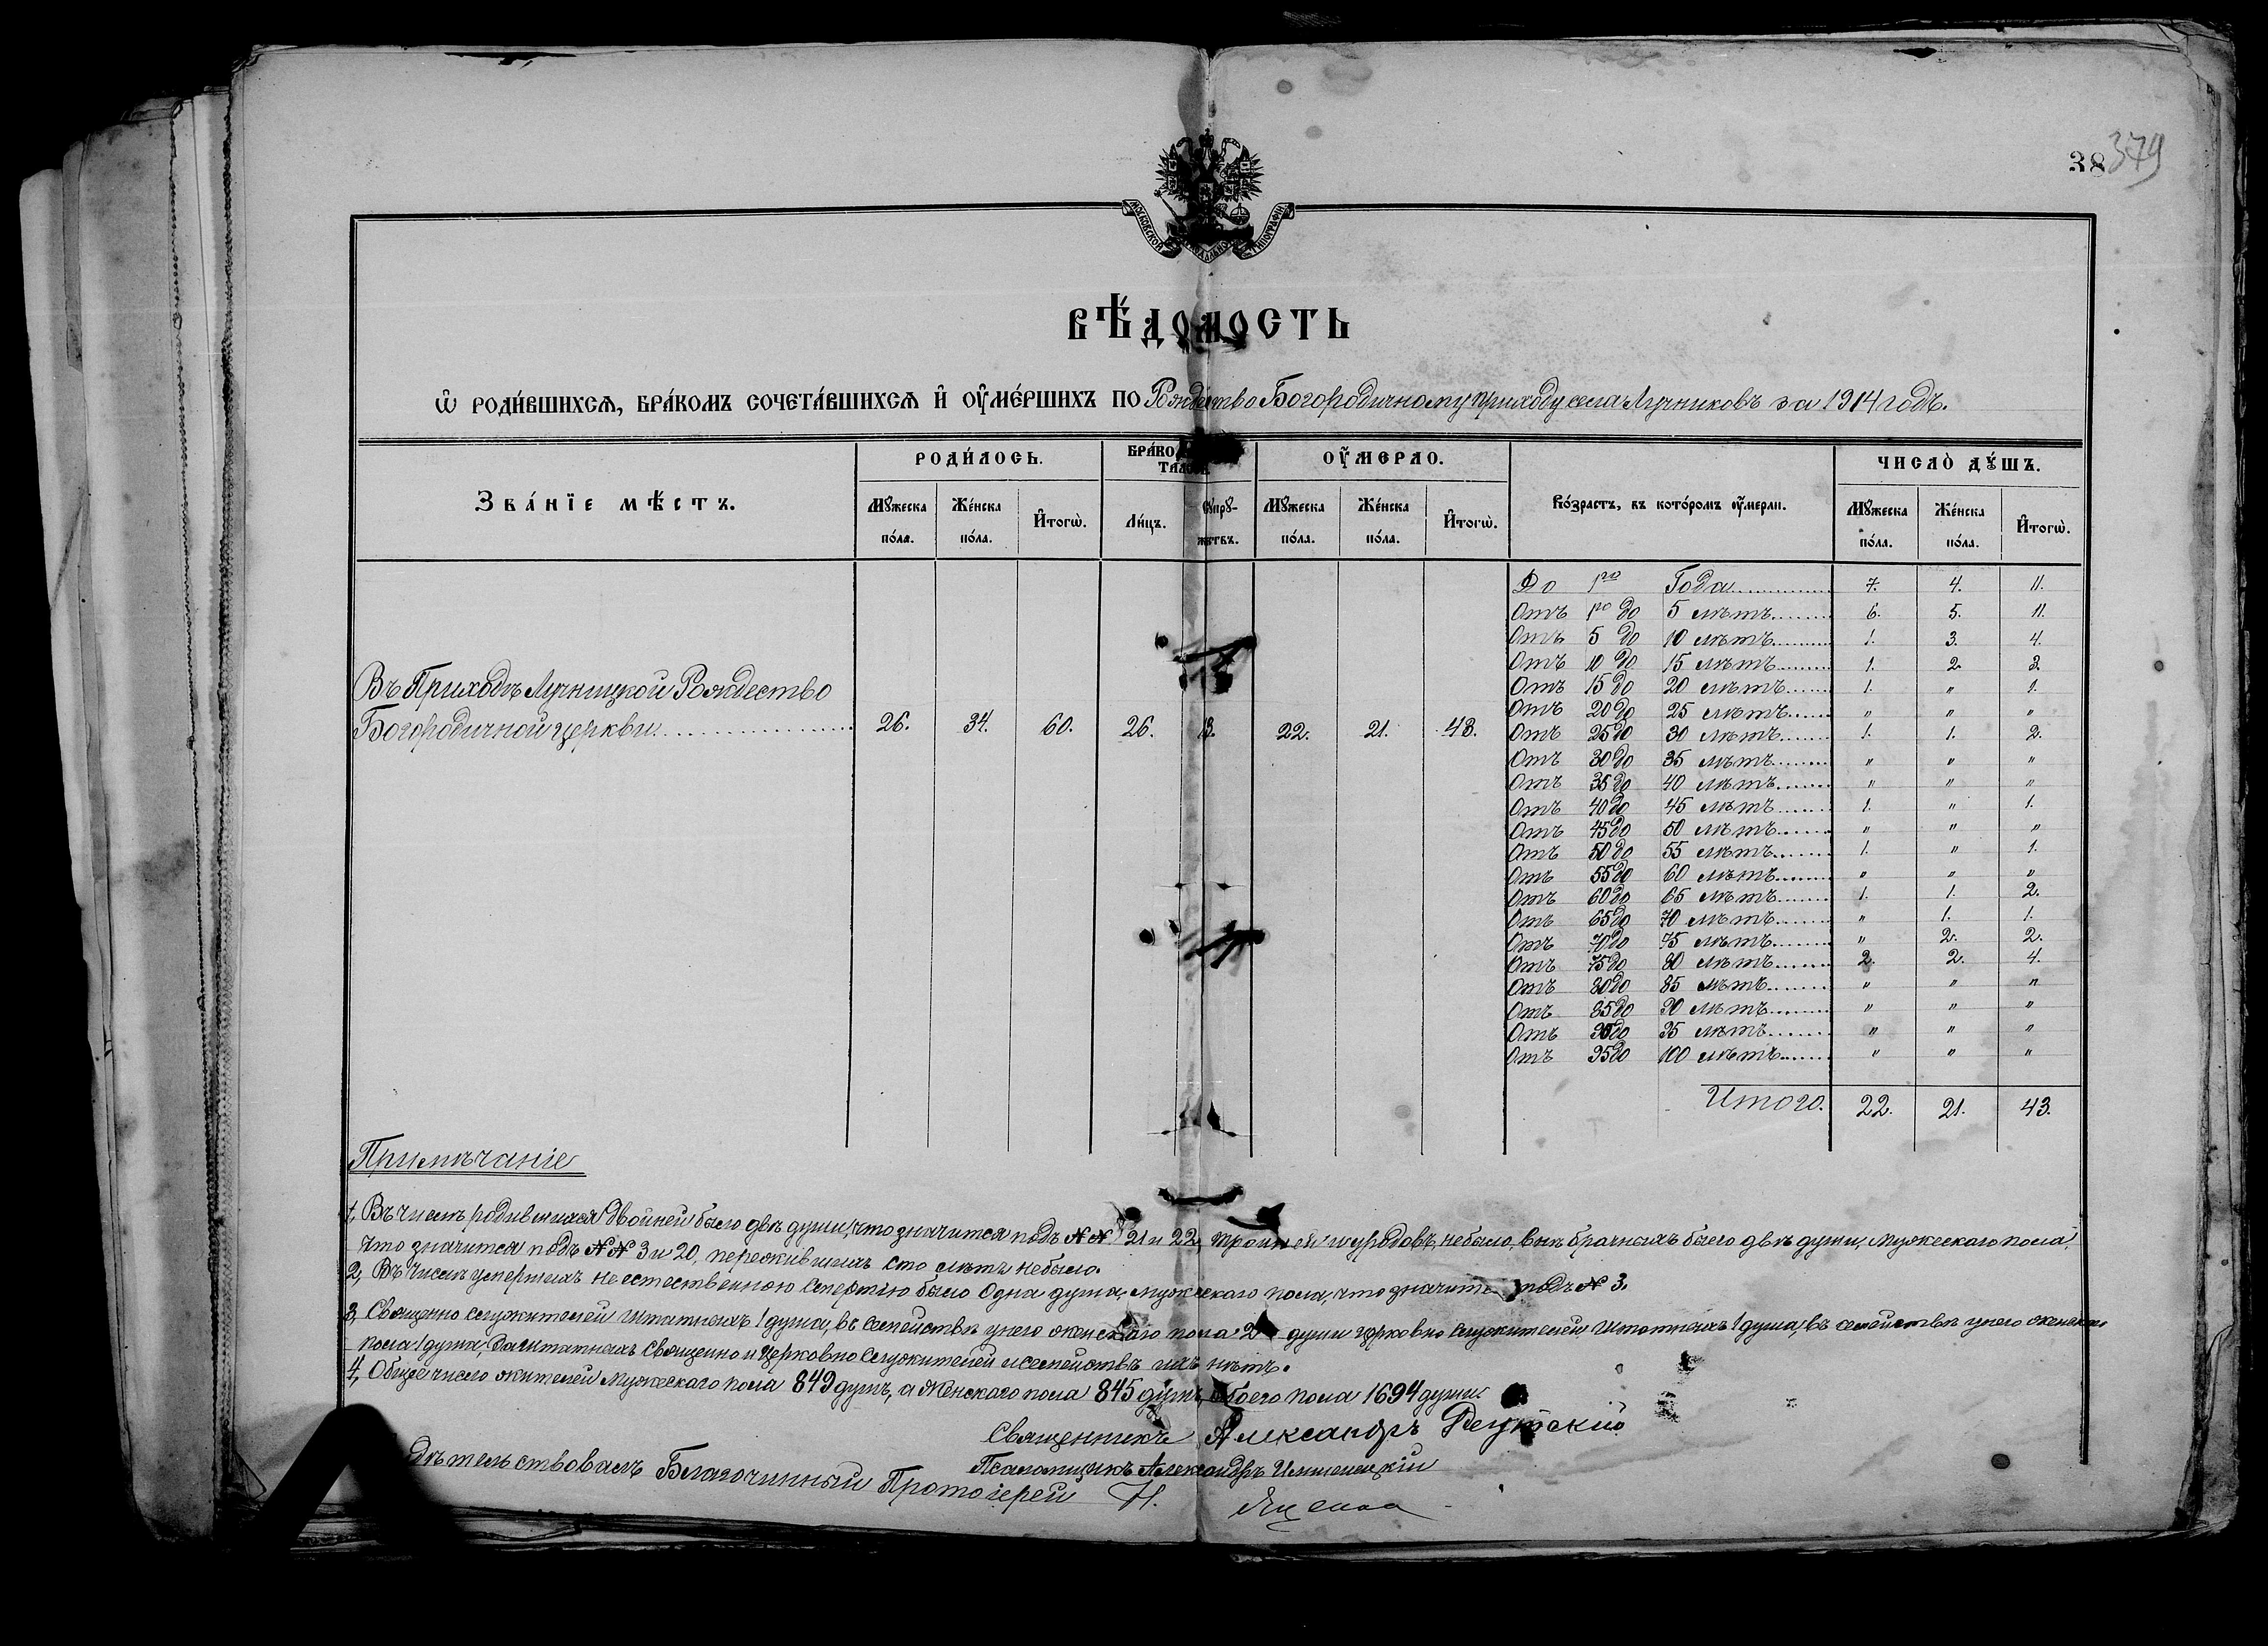 38 379
МОСКОВСКОЙ СѴНОДАЛЬНОЙ ТИПОГРАФІИ
ВѢ́ДОМОСТЬ
Ѡ҆ РОДИ́ВШИХСѦ, БРА́КОМЪ СОЧЕТА́ВШИХСѦ И҆ ОУ҆МЕ́РШИХЪ ПО Рождество Богородичному приходу села Лучниковъ за 1914 годъ.
Зва́нїе мѣ́стъ.
РОДИ́ЛОСЬ.
БРА́КО
ОУ҆́МЕРЛО.
Во́зрастъ, въ кото́ромъ оу҆́мерли.
ЧИСЛО̀ ДꙊ́ШЪ.
Мꙋ́жеска по́ла.
Же́нска по́ла.
И҆тогѡ̀.
Ли́цъ.
Сꙋпрꙋ́жествъ.
Мꙋ́жеска по́ла.
Же́нска по́ла.
И҆тогѡ̀.
Мꙋ́жеска по́ла.
Же́нска по́ла.
И҆тогѡ̀.
Въ Приходѣ Лучницкой Рождество
Богородичной церкви 26. 34. 60. 26. 13. 22. 21. 43.
До 1го Года 7. 4. 11.
Отъ 1го до 5 лѣтъ 6. 5. 11.
Отъ 5 до 10 лѣтъ 1. 3. 4.
Отъ 10 до 15 лѣтъ 1. 2. 3.
Отъ 15 до 20 лѣтъ 1. " 1.
Отъ 20 до 25 лѣтъ " " "
Отъ 25 до 30 лѣтъ 1. 1. 2.
Отъ 30 до 35 лѣтъ " " "
Отъ 35 до 40 лѣтъ " " "
Отъ 40 до 45 лѣтъ 1. " 1.
Отъ 45 до 50 лѣтъ " " "
Отъ 50 до 55 лѣтъ 1. " 1.
Отъ 55 до 60 лѣтъ " " "
Отъ 60 до 65 лѣтъ 1. 1. 2.
Отъ 65 до 70 лѣтъ " 1. 1.
Отъ 70 до 75 лѣтъ " 2. 2.
Отъ 75 до 80 лѣтъ 2. 2. 4.
Отъ 80 до 85 лѣтъ " " "
Отъ 85 до 90 лѣтъ " " "
Отъ 90 до 95 лѣтъ " " "
Отъ 95 до 100 лѣтъ " " "
Итого. 22. 21. 43.
Примѣчаніе
1, Въ числѣ родившихся двойней было двѣ души, что значится подъ №№ 21 и 22, тройней и уродовъ, небыло, внѣ брачныхъ было двѣ души, мужескаго пола,
что значится подъ №№ 3 и 20, пережившихъ сто лѣтъ небыло.
2, Въ числѣ умершихъ не естественною смертію было Одна душа, мужескаго пола, что значится подъ № 3.
3, Священно служителей Штатныхъ 1 душа, въ семействѣ унего женскаго пола 2 души Церковно служителей Штатныхъ 1 душа, въ семействѣ унего женскаго
пола 1 душа, Заштатныхъ Священно и Церковно Служителей и семействъ ихъ нѣтъ.
4, Общее число жителей Мужескаго пола 849 душъ, а Женскаго пола 845 душъ, обоего пола 1694 души.
Священникъ Александръ
Псаломщикъ Александръ
дѣтельствовалъ Благочинный Протоіерей Н.